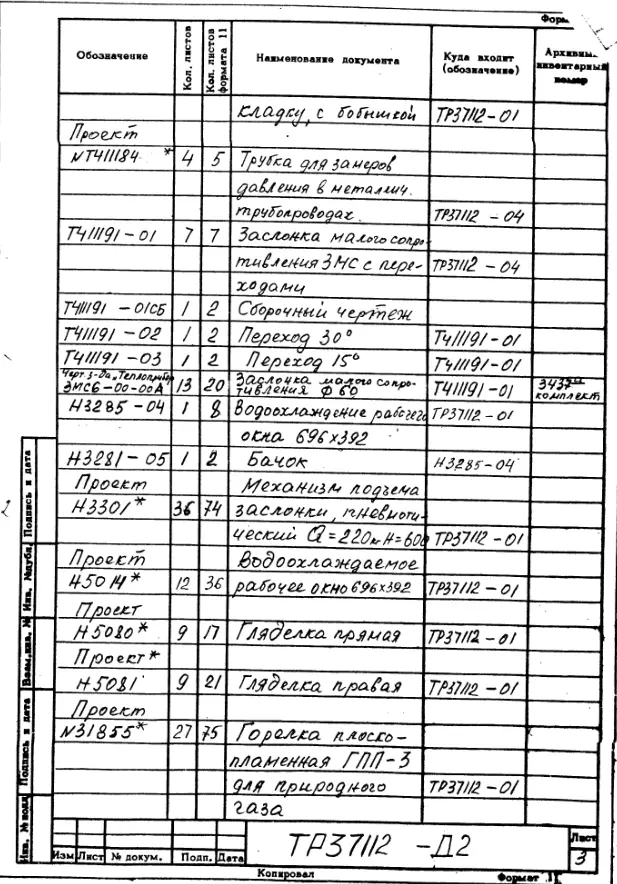 Форм
Обозначение Кол. листов Кол. листов формата 11 Наименование документа Куда входит (обозначение) Архивный инвентарный номер
кладку, с бобышкой ТР37112-01
Проект
NТ411184 * 4 5 Трубка для замеров
давления в металлич.
трубопроводах. ТР37112 - 04
Т411191-01 7 7 Заслонка малого сопро-
тивления ЗМС с пере- ТР37112 - 04
ходами
Т411191 - 01СБ 1 2 Сборочный чертеж
Т411191 - 02 1 2 Переход 30° Т411191-01
Т411191 - 03 1 2 Переход 15° Т411191-01
Черт. з-да „Теплоприбор
ЗМС6-00-00А 13 20 Заслонка малого сопро-
тивления ф 60 Т411191-01 комплект
Н3285-04 1 8 Водоохлаждение рабочего ТР37112-01
окна 696х392
Н3281-05 1 2 Бачок Н3285-04
Проект Механизм подъема
Н3301* 36 74 заслонки, пневмати-
ческий Q=220кг Н=600 ТР37112-01
Проект Водоохлаждаемое
Н5014* 12 36 рабочее окно 696х392 ТР37112-01
Проект
Н5080* 9 17 Гляделка прямая ТР37112-01
Проект*
Н5081 9 21 Гляделка правая ТР37112-01
Проект
N31855* 27 75 Горелка плоско-
пламенная ГПП-3
для природного ТР37112-01
газа
Инв. № подл Подпись и дата Взам.инв. № Инв. №дубл. Подпись и дата
ТР37112 -Д2
Лист
3
Изм Лист № докум. Подп. Дата
Копировал Формат 11